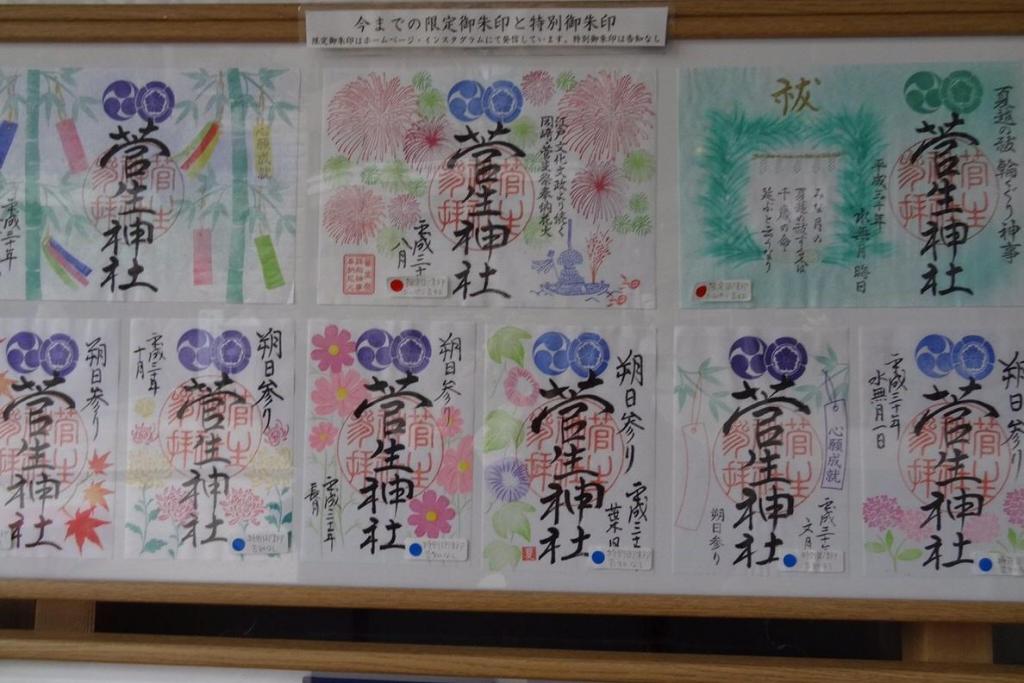 今までの限定御朱印と特別御朱印
限定御朱印はホームページ・インスタグラムにて発信しています。特別御朱印は告知なし
心願成就
菅生神社
平成三十年
江戸文化文政より続く
岡崎菅生祭奉納花火
菅生神社
平成三十
八月
夏越の祓 輪くぐり神事
菅生神社
平成三十年
水無月 晦日
祓
みな月の
夏越の祓する人は
千歳の命
延ぶと云うなり
朔日参り
菅生神社
朔日参り
菅生神社
平成三十年
十月
朔日参り
菅生神社
平成三十年
長月
朔日参り
菅生神社
平成三十
葉月
夏
心願成就
菅生神社
平成三十
朔日参り
朔日参り
菅生神社
平成三十年
水無月一日